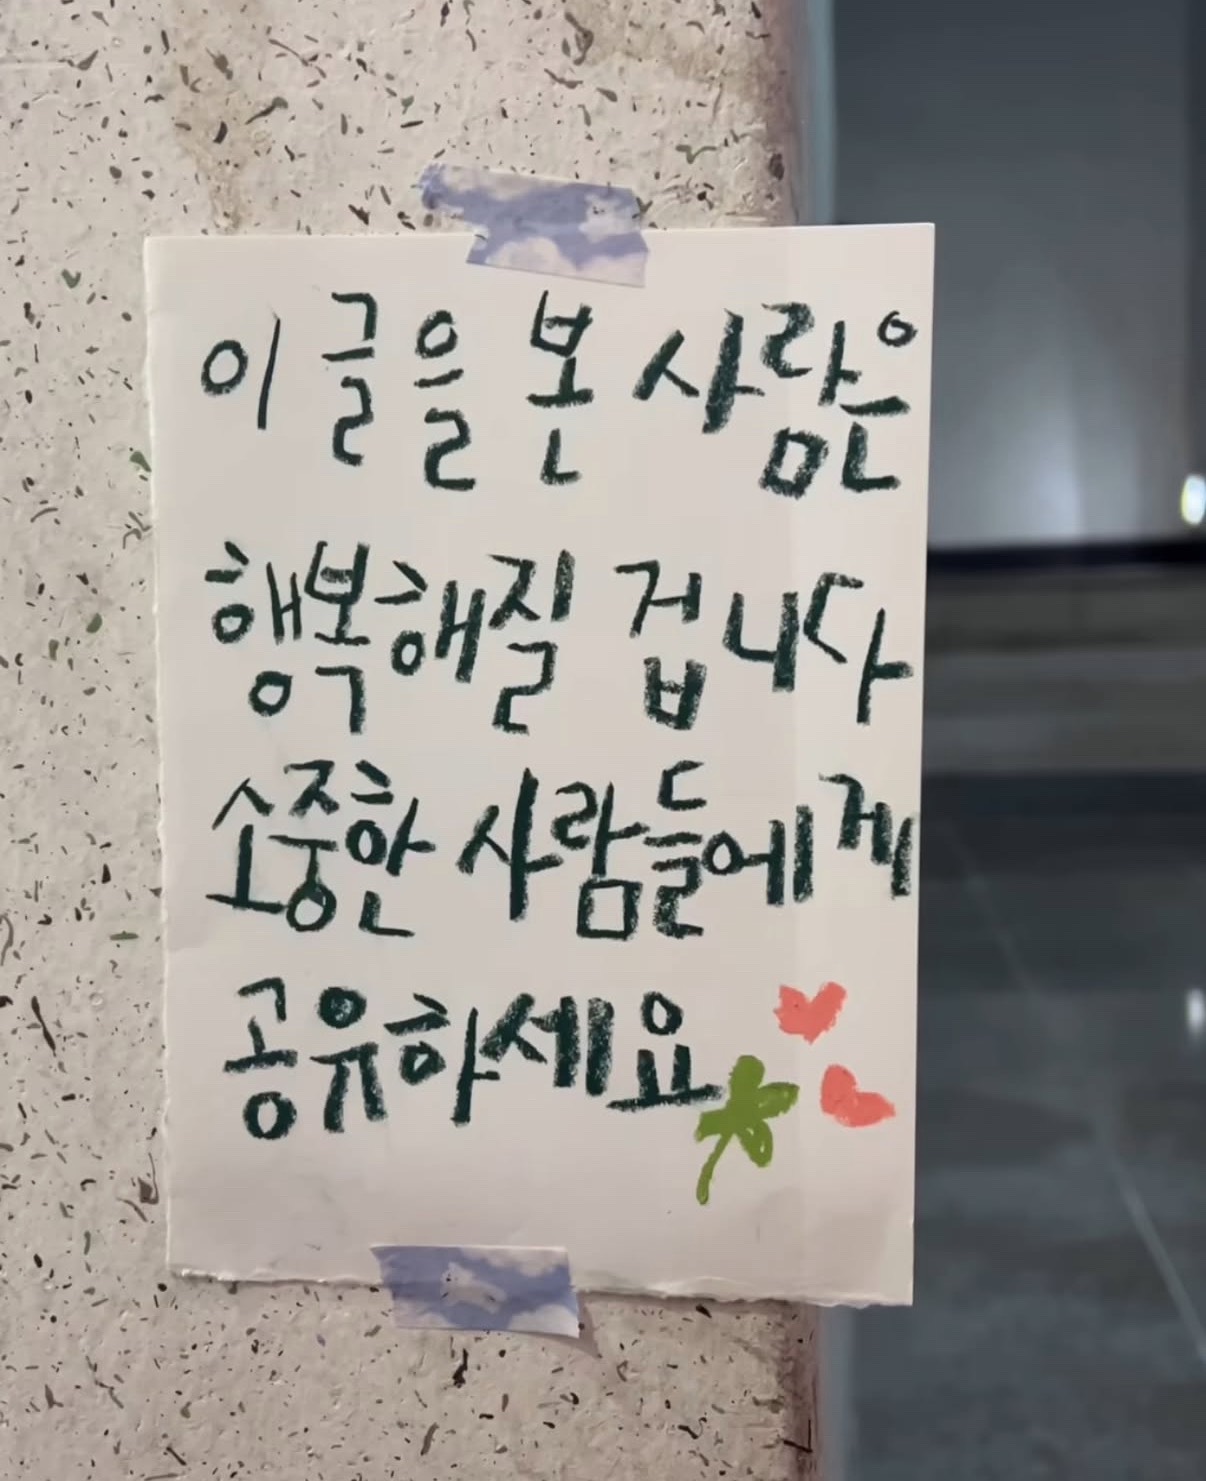 이 글을 본 사람은
행복해질 겁니다
소중한 사람들에게
공유하세요